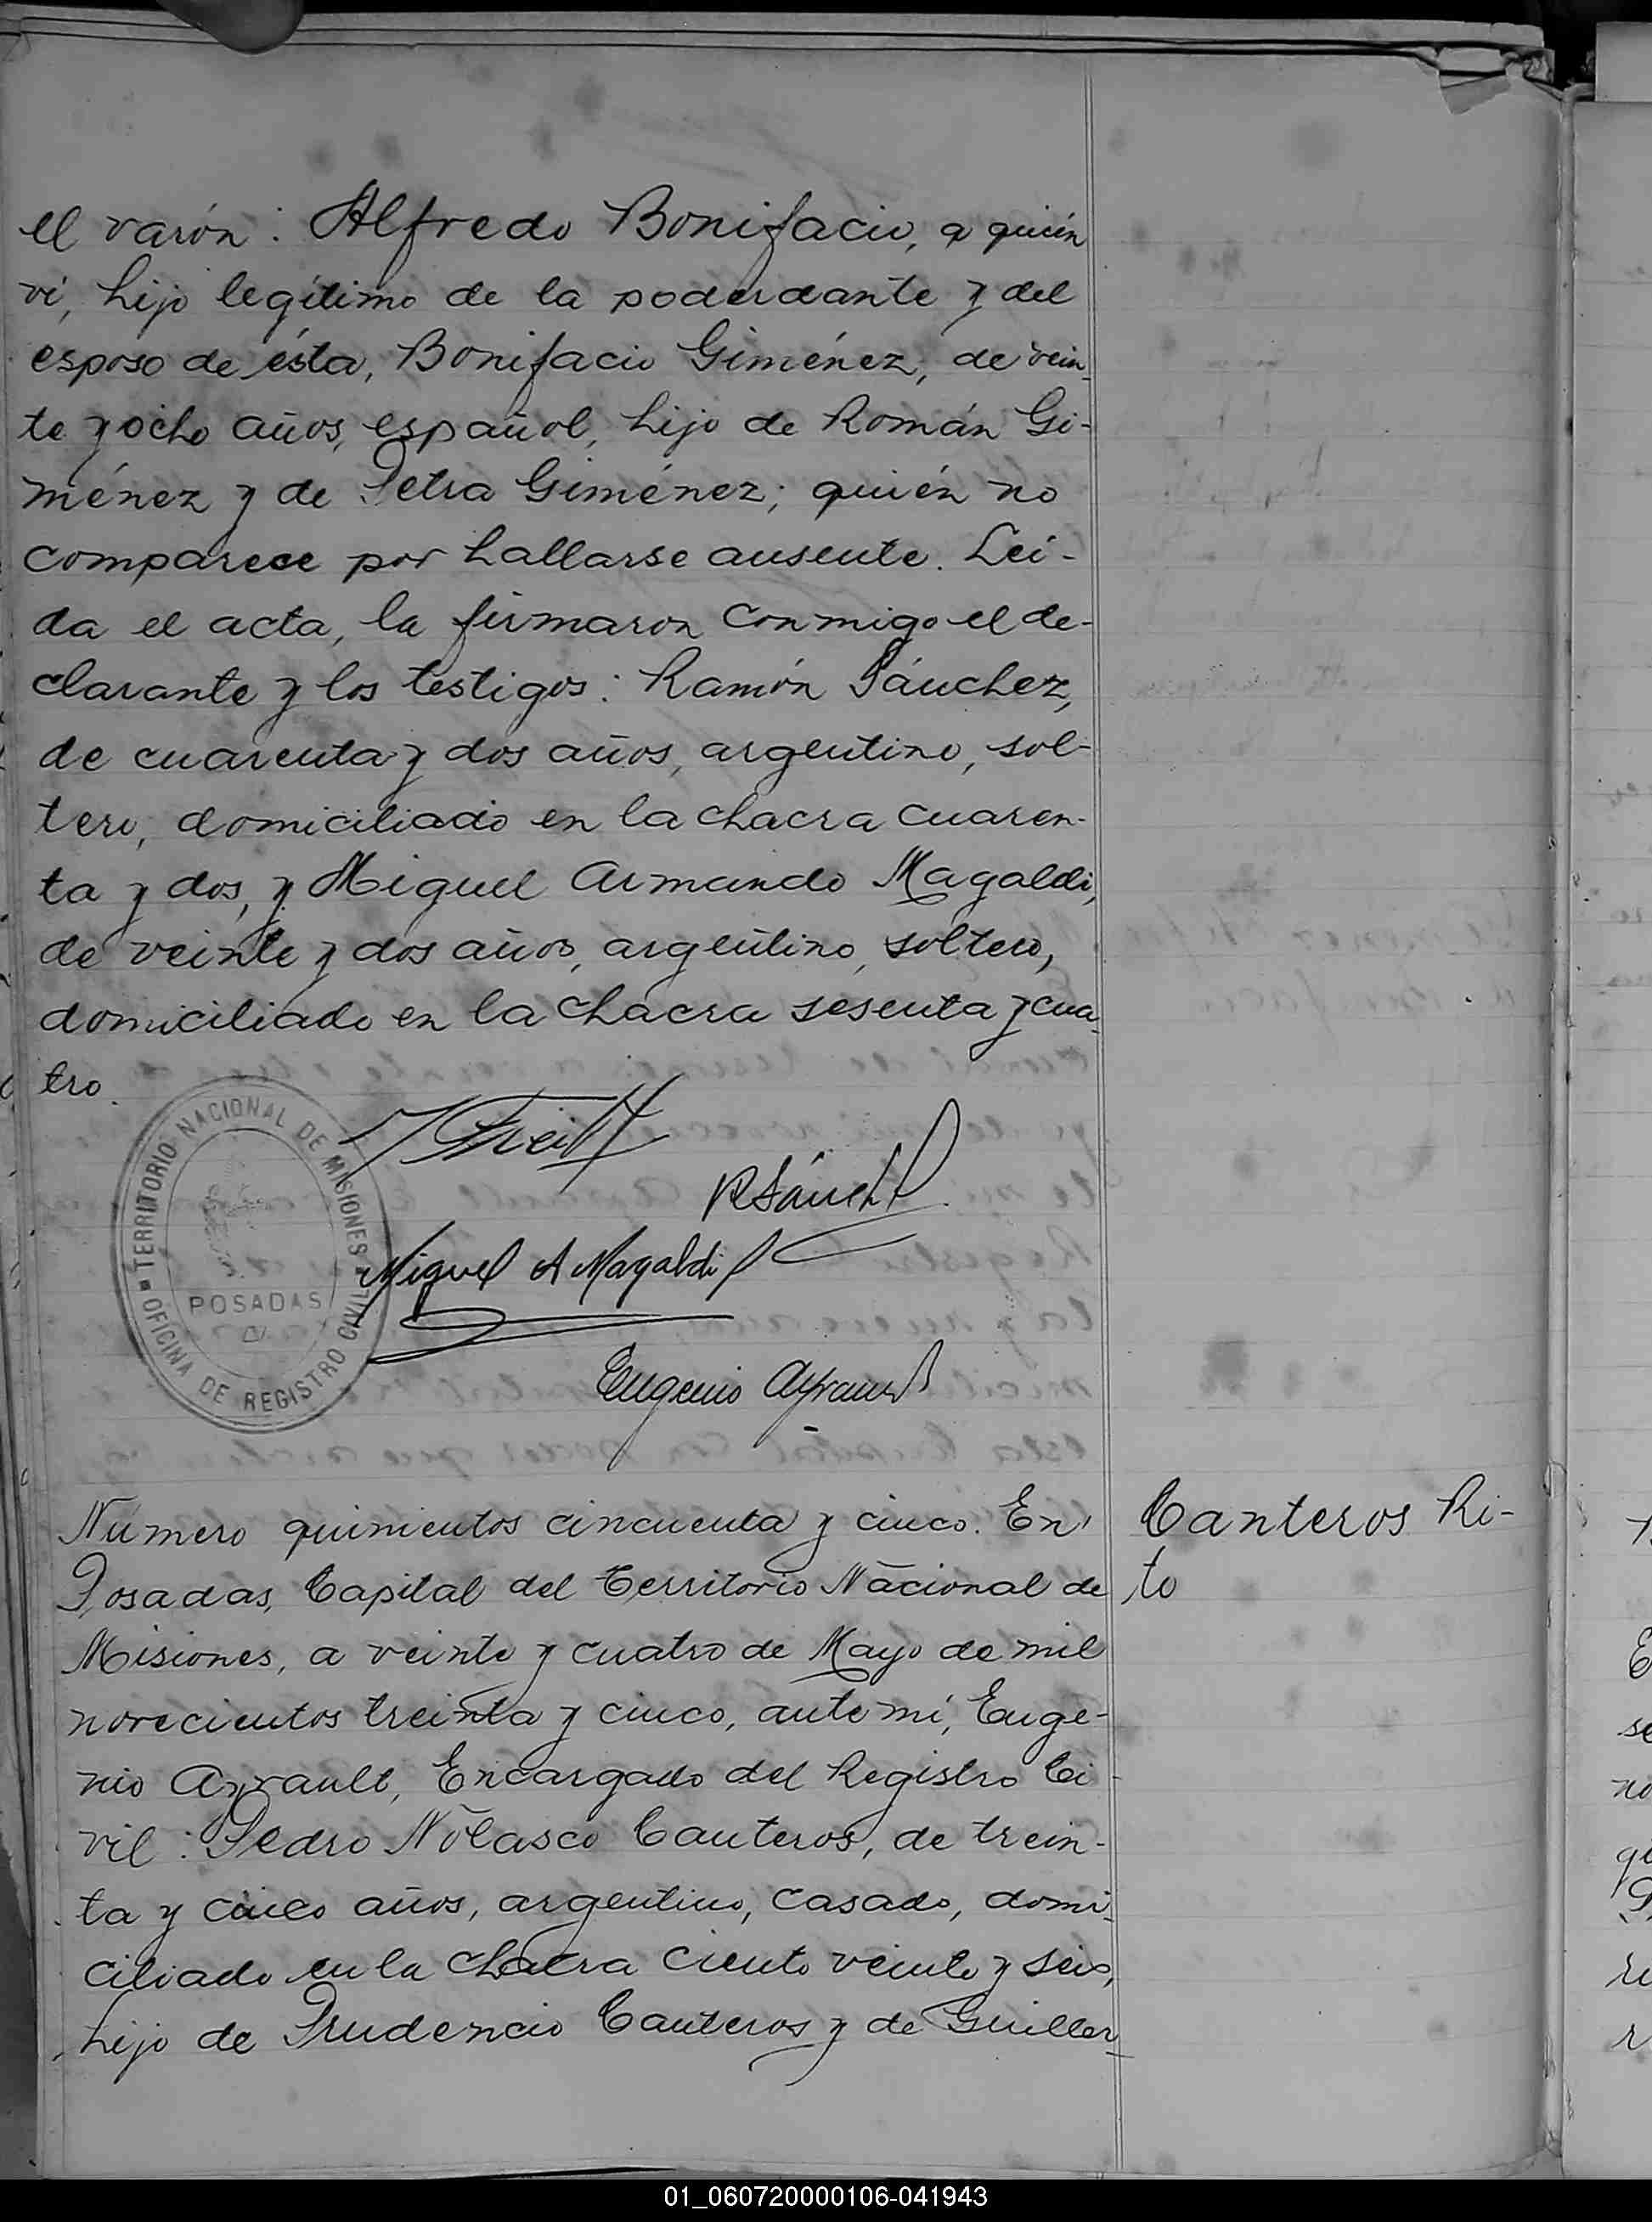 el varón: Alfredo Bonifacio, a quién
ví, hijo legítimo de la poderdante y del
esposo de ésta, Bonifacio Giménez, de vein_
te y ocho años, español, hijo de Román Gi-
ménez y de Petra Giménez; quién no
comparece por hallarse ausente. Leí-
da el acta, la firmaron conmigo el de-
clarante y los testigos: Ramón Sánchez,
de cuarenta y dos años, argentino, sol-
tero, domiciliado en la chacra cuaren-
ta y dos, y Miguel Armando Magaldi,
de veinte y dos años, argentino, soltero,
domiciliado en la chacra sesenta y cua_
tro.
TERRITORIO NACIONAL DE MISIONES
POSADAS
OFICINA DE REGISTRO CIVIL
R Sánchez
Miguel A Magaldi
Eugenio Ayrault
Número quinientos cincuenta y cinco. En
Posadas, Capital del Territorio Nacional de
Misiones, a veinte y cuatro de Mayo de mil
novecientos treinta y cinco, ante mí, Euge-
nio Ayrault, Encargado del Registro Ci-
vil: Pedro Nolasco Canteros, de trein-
ta y cinco años, argentino, casado, domi_
ciliado en la chacra ciento veinte y seis,
hijo de Prudencio Canteros y de Guiller_
Canteros Ri-
to
01_060720000106-041943